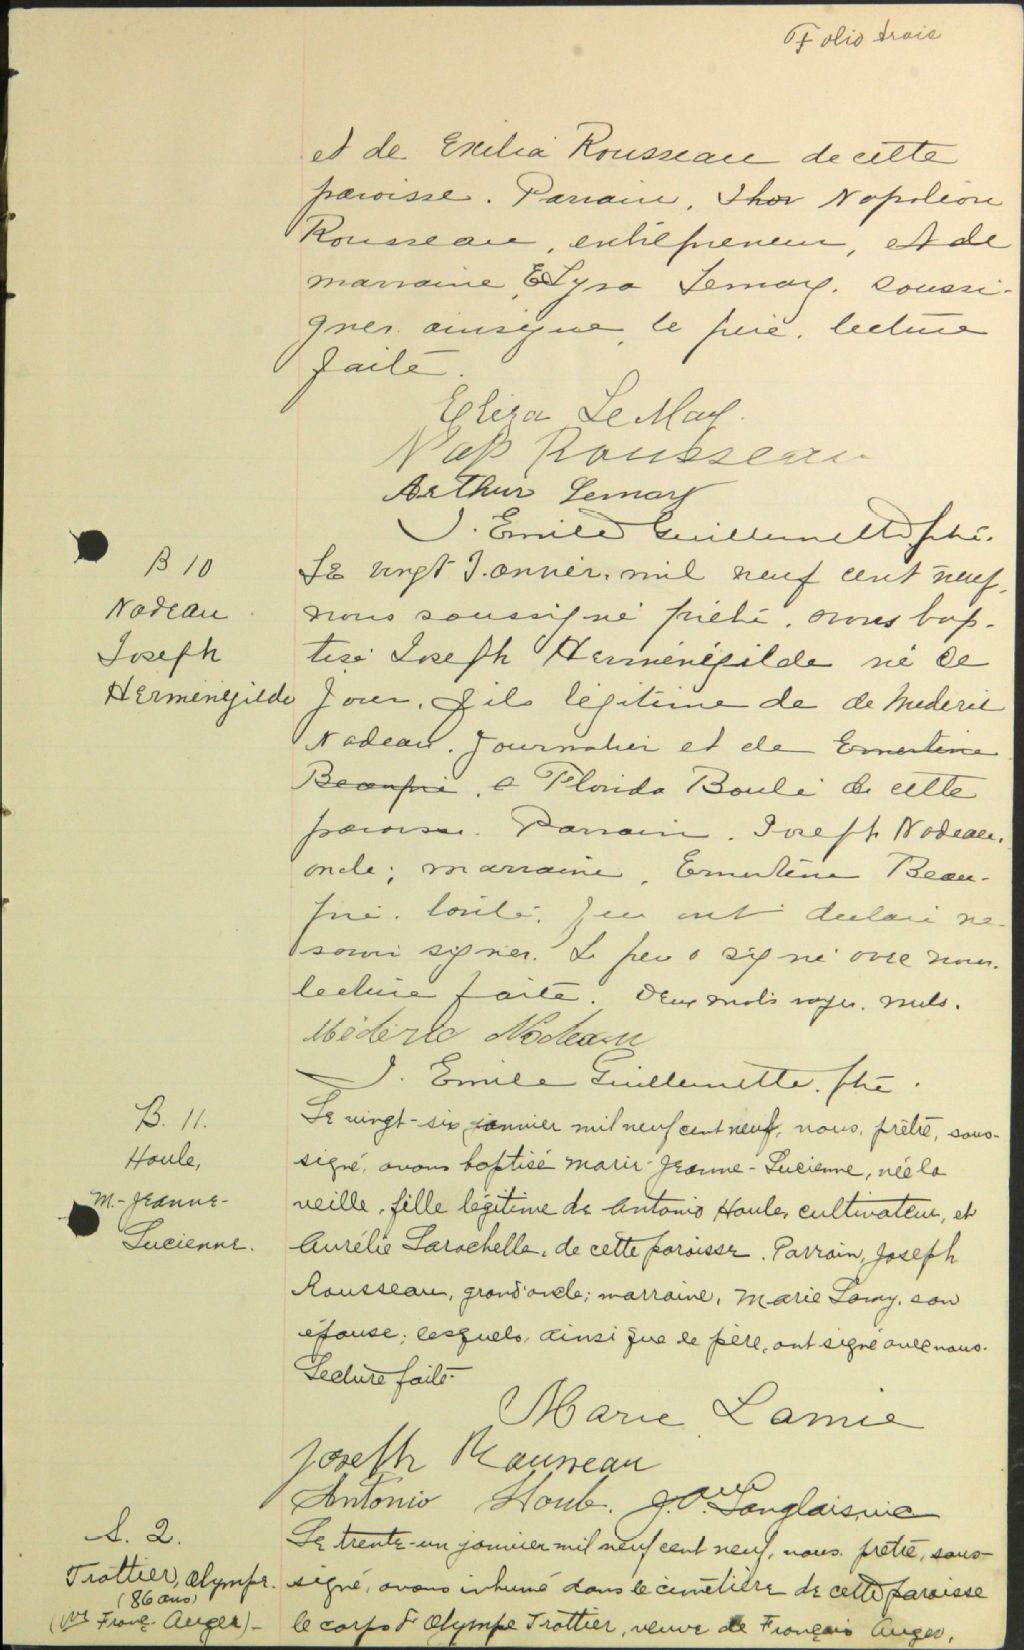 Folio trois
et de Exilia Rousseau de cette
paroisse. Parrain, Napoléon
Rousseau, entrepreneur, et de
marraine, Elyza Lemay. soussi-
gner ainsique le père. lecture
faite.
Eliza LeMay.
Nap Rousseau
Arthur Lemay
J. Emile Guillemette ptre.
B 10
Nadeau
Joseph
Herménégilde
Le vingt Janvier, mil neuf cent neuf,
nous soussigné prêtre, avons bap-
tisé Joseph Herménégilde né ce
jour, fils légitime de de Mederic
Nadeau. Journalier et de Ernestine
Beaupré, Florida Boulé de cette
paroisse. Parrain, Joseph Nadeau,
oncle; marraine, Ernestine Beau-
pré. ont déclaré ne
savoir signer. Le père a signé avec nous.
lecture faite. Deux mots rayés nuls.
Médéric Nadeau
J. Emile Guillemette, ptre.
B. 11.
Houle,
M.-Jeanne-
Lucienne.
Le vingt-six janvier mil neuf cent neuf, nous, prêtre, sous-
signé, avons baptisé Marie-Jeanne-Lucienne, née la
veille, fille légitime de Antonio Houle, cultivateur, et
Aurélie Larochelle, de cette paroisse. Parrain, Joseph
Rousseau, grand'oncle; marraine, Marie Lamy, son
épouse; lesquels, ainsi que le père, ont signé avec nous.
Lecture faite-
Marie Lamie
Joseph Rousseau
Antonio Houle. J.O. Langlais, vic
S. 2.
Trottier, Olympe.
(86 ans)
(Vve Franç. Auger)-
Le trente-un janvier mil neuf cent neuf, nous, prêtre, sous-
signé, avons inhumé dans le cimetière de cette paroisse
le corps d'Olympe Trottier, veuve de François Auger,